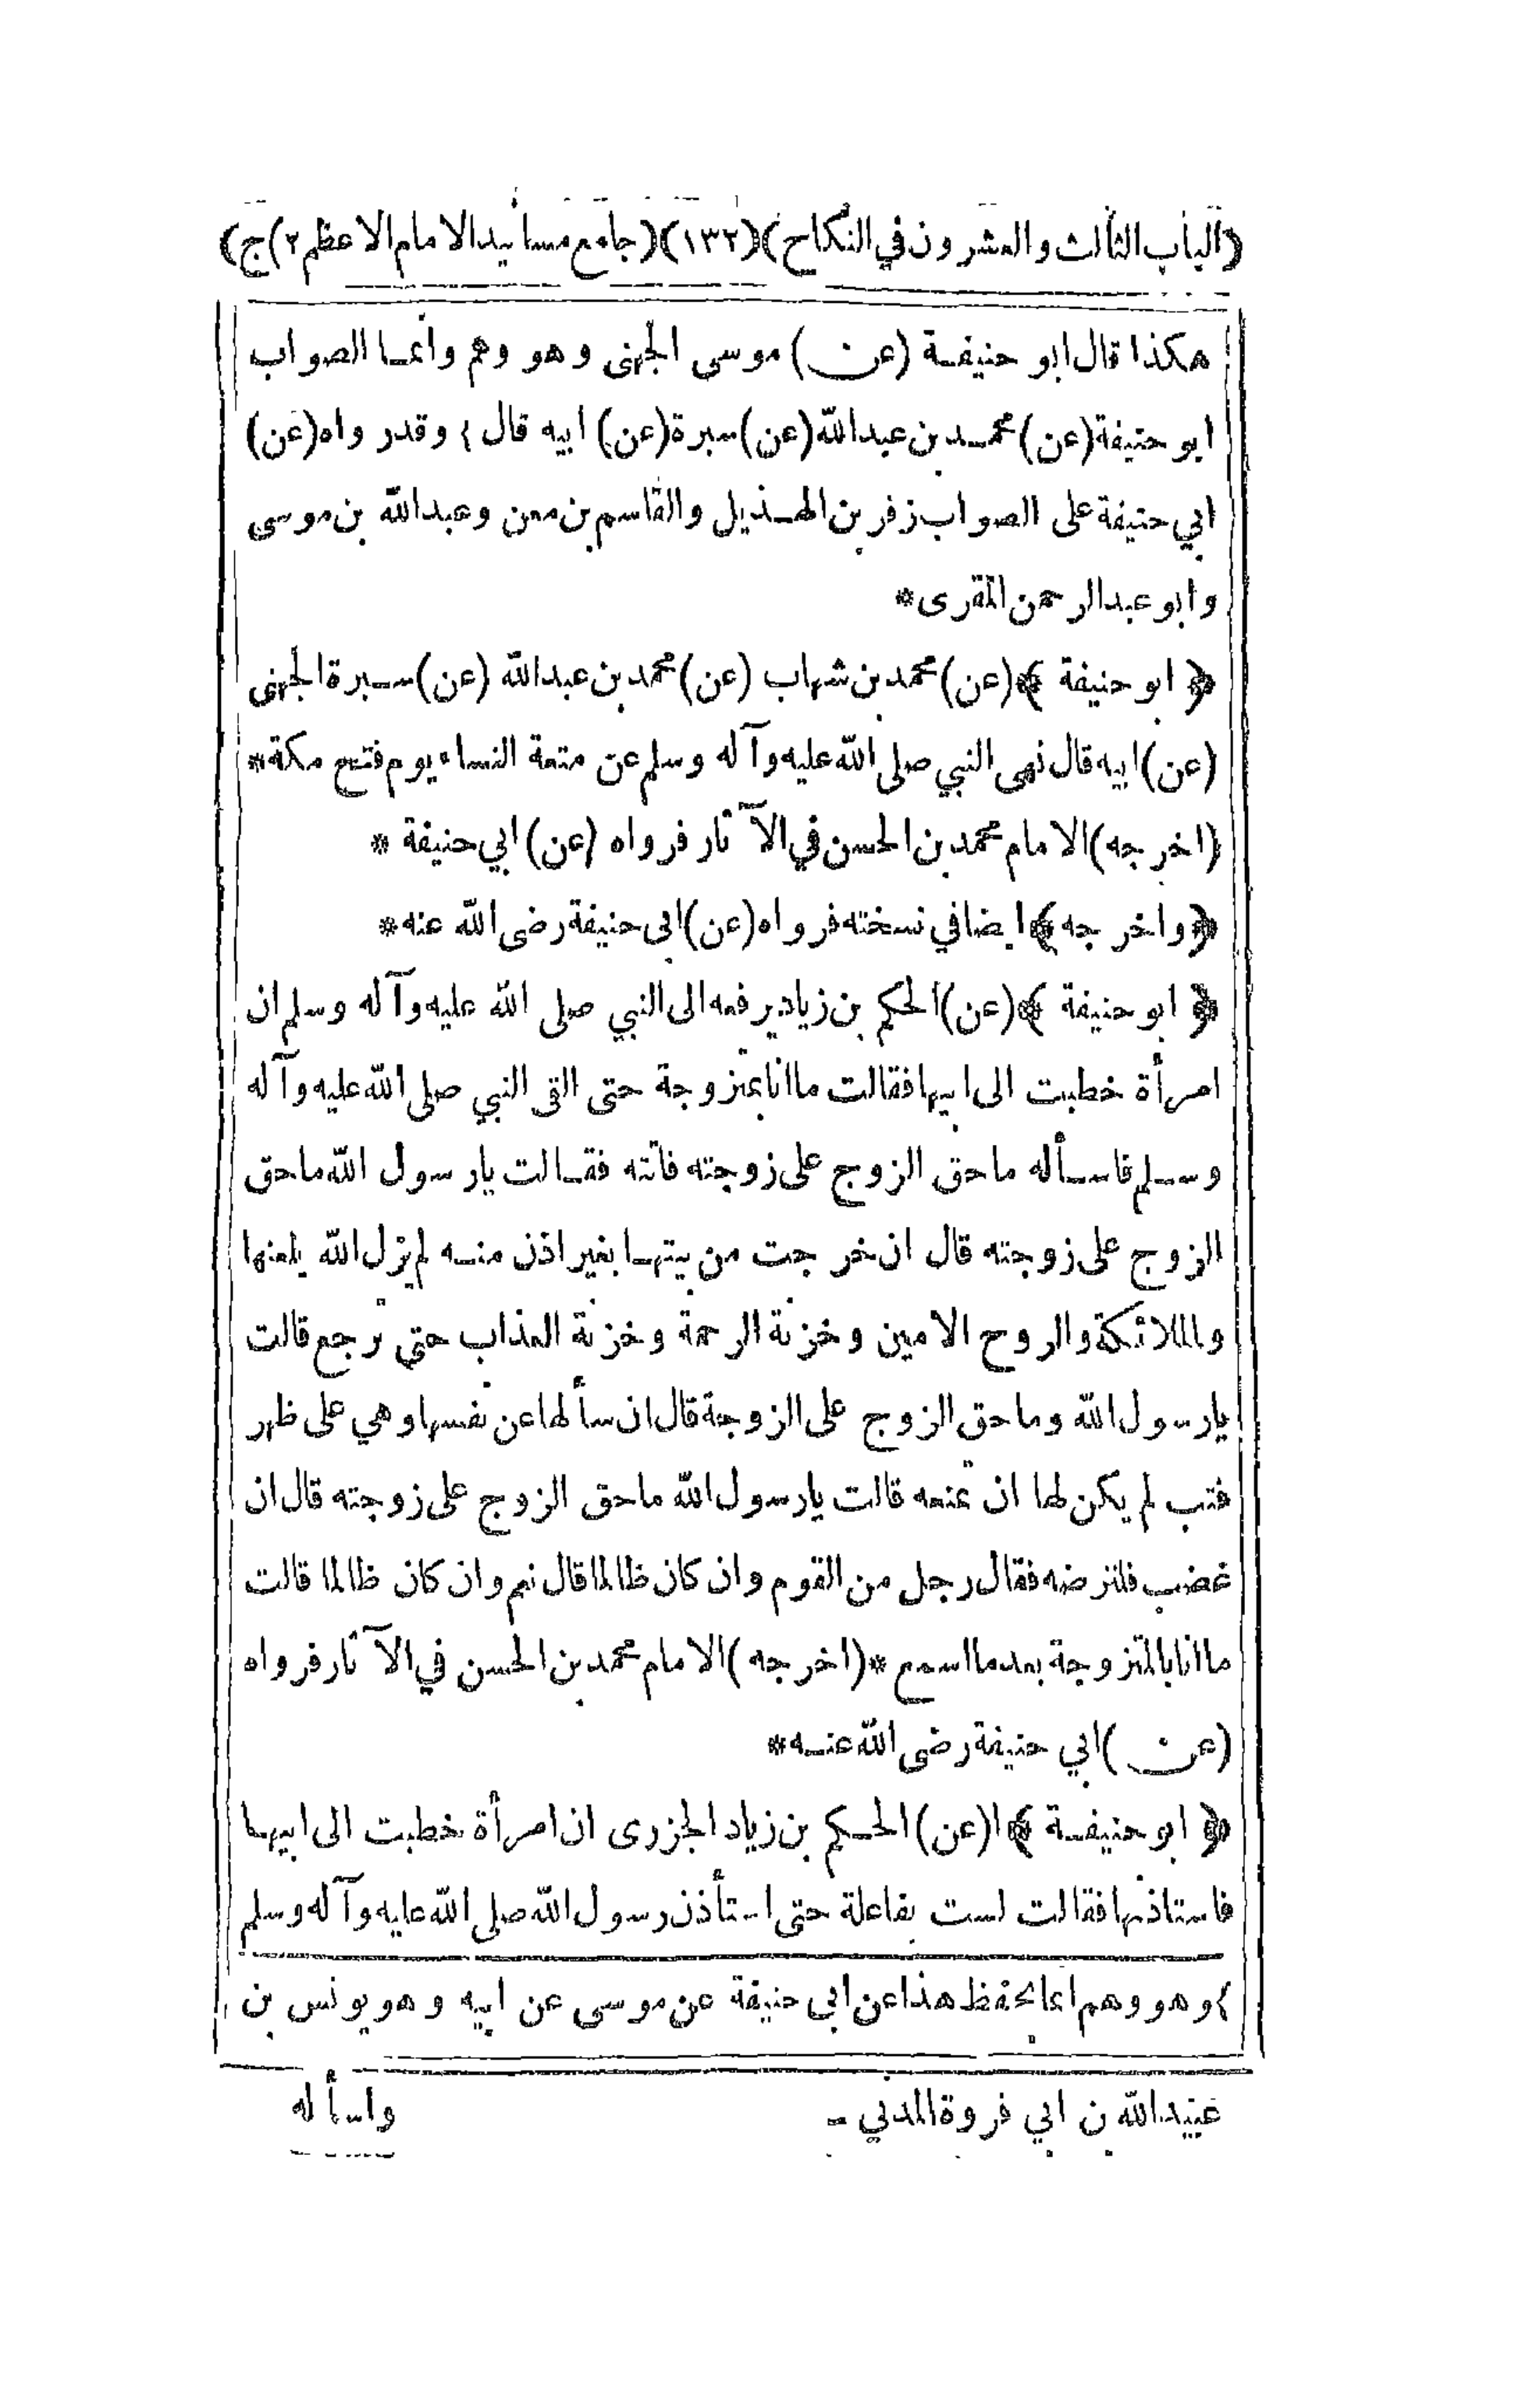 (الباب الثالث والعشرون في النكاح)(١٣٢)(جامع مسانيد الامام الاعظم ٢)ج)
هكذا قال ابو حنيفة (عن) موسى الجهنى وهو وهم وانما الصواب
ابو حنيفة (عن) محمد بن عبد الله (عن) سبرة (عن) ابيه قال } وقد رواه (عن)
ابي حنيفة على الصواب زفر بن الهذيل والقاسم بن معن وعبد الله بن موسى
وابو عبد الرحمن المقرى *
﴿ ابو حنيفة ﴾ (عن) محمد بن شهاب (عن) محمد بن عبد الله (عن) سبرة الجهنى
(عن) ابيه قال نهى النبي صلى الله عليه وآله وسلم عن متعة النساء يوم فتح مكة *
(اخرجه) الامام محمد بن الحسن في الآثار فرواه (عن) ابي حنيفة *
﴿ واخرجه ﴾ ايضا في نسخته فرواه (عن) ابى حنيفة رضى الله عنه *
﴿ ابو حنيفة ﴾ (عن) الحكم بن زياد يرفعه الى النبي صلى الله عليه وآله وسلم ان
امرأة خطبت الى ابيها فقالت ما انا بمتزوجة حتى القى النبي صلى الله عليه وآله
وسلم فاسأله ما حق الزوج على زوجته فأتته فقالت يا رسول الله ما حق
الزوج على زوجته قال ان خرجت من بيتها بغير اذن منه لم يزل الله يلعنها
والملائكة والروح الامين وخزنة الرحمة وخزنة العذاب حتى ترجع قالت
يا رسول الله وما حق الزوج على الزوجة قال ان سألها عن نفسها وهي على ظهر
قتب لم يكن لها ان تمنعه قالت يا رسول الله ما حق الزوج على زوجته قال ان
غضب فلترضه فقال رجل من القوم وان كان ظالما قال نعم وان كان ظالما قالت
ما انا بالمتزوجة بعد ما اسمع * (اخرجه) الامام محمد بن الحسن في الآثار فرواه
(عن) ابي حنيفة رضى الله عنه *
﴿ ابو حنيفة ﴾ ا(عن) الحكم بن زياد الجزرى ان امرأة خطبت الى ابيها
فاستاذنها فقالت لست بفاعلة حتى استأذن رسول الله صلى الله عليه وآله وسلم
} وهو وهم انما يحفظ هذا عن ابى حنيفة عن موسى عن ابيه وهو يونس بن
عبيد الله بن ابي فروة المدني -
واسأله